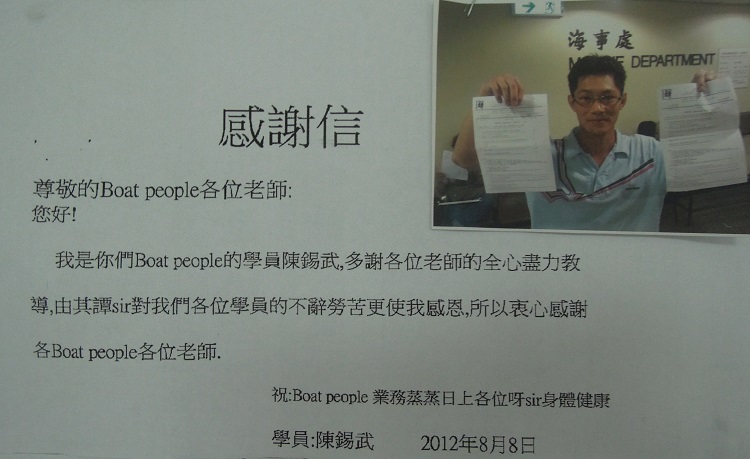 海事處
DEPARTMENT
感謝信
尊敬的Boat people各位老師:
您好!
我是你們Boat people的學員陳錫武,多謝各位老師的全心盡力教
導,由其譚sir對我們各位學員的不辭勞苦更使我感恩,所以衷心感謝
各Boat people各位老師.
祝:Boat people 業務蒸蒸日上各位呀sir身體健康
學員:陳錫武 2012年8月8日